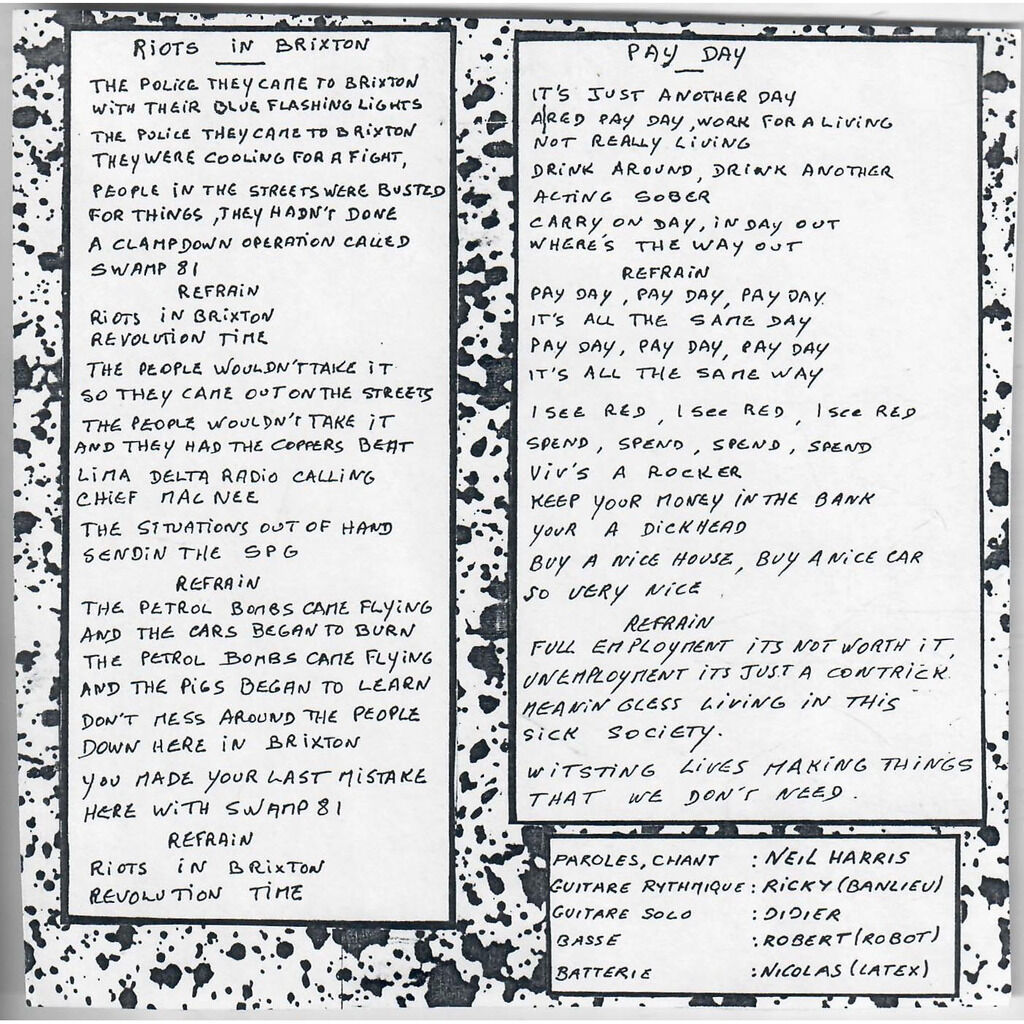 RIOTS IN BRIXTON
THE POLICE THEY CAME TO BRIXTON
WITH THEIR BLUE FLASHING LIGHTS
THE POLICE THEY CAME TO BRIXTON
THEY WERE COOLING FOR A FIGHT,
PEOPLE IN THE STREETS WERE BUSTED
FOR THINGS, THEY HADN'T DONE
A CLAMPDOWN OPERATION CALLED
SWAMP 81
REFRAIN
RIOTS IN BRIXTON
REVOLUTION TIME
THE PEOPLE WOULDN'T TAKE IT
SO THEY CAME OUT ON THE STREETS
THE PEOPLE WOULDN'T TAKE IT
AND THEY HAD THE COPPERS BEAT
LIMA DELTA RADIO CALLING
CHIEF MAC NEE
THE SITUATIONS OUT OF HAND
SENDIN THE SPG
REFRAIN
THE PETROL BOMBS CAME FLYING
AND THE CARS BEGAN TO BURN
THE PETROL BOMBS CAME FLYING
AND THE PIGS BEGAN TO LEARN
DON'T MESS AROUND THE PEOPLE
DOWN HERE IN BRIXTON
YOU MADE YOUR LAST MISTAKE
HERE WITH SWAMP 81
REFRAIN
RIOTS IN BRIXTON
REVOLUTION TIME
PAY DAY
IT'S JUST ANOTHER DAY
A RED PAY DAY, WORK FOR A LIVING
NOT REALLY LIVING
DRINK AROUND, DRINK ANOTHER
ACTING SOBER
CARRY ON DAY, IN DAY OUT
WHERE'S THE WAY OUT
REFRAIN
PAY DAY, PAY DAY, PAY DAY
IT'S ALL THE SAME DAY
PAY DAY, PAY DAY, PAY DAY
IT'S ALL THE SAME WAY
I SEE RED, I SEE RED, I SEE RED
SPEND, SPEND, SPEND, SPEND
VIV'S A ROCKER
KEEP YOUR MONEY IN THE BANK
YOUR A DICKHEAD
BUY A NICE HOUSE, BUY A NICE CAR
SO VERY NICE
REFRAIN
FULL EMPLOYMENT ITS NOT WORTH IT,
UNEMPLOYMENT ITS JUST A CONTRICK.
MEANIN GLESS LIVING IN THIS
SICK SOCIETY.
WITSTING LIVES MAKING THINGS
THAT WE DON'T NEED.
PAROLES, CHANT : NEIL HARRIS
GUITARE RYTHMIQUE : RICKY (BANLIEU)
GUITARE SOLO : DIDIER
BASSE : ROBERT (ROBOT)
BATTERIE : NICOLAS (LATEX)